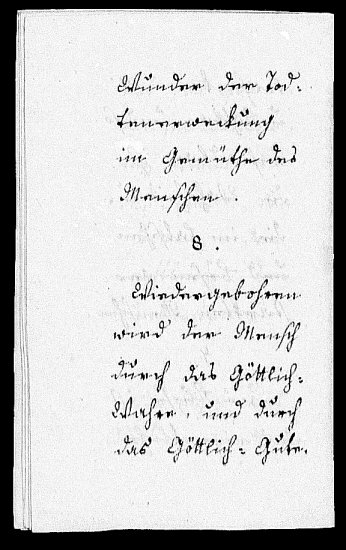 Wunder der Tod-
tenerweckung
im Gemüthe des
Menschen.
8.
Wiedergebohren
wird der Mensch
durch das Göttlich-
Wahre, und durch
das Göttlich-Gute.